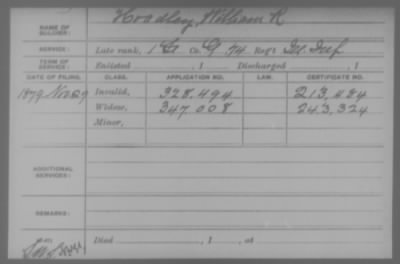 NAME OF SOLDIER: Hoadley, William R
SERVICE: Late rank, 1 Lt Co. G, 74, Reg't Ill. Inf.
TERM OF SERVICE: Enlisted , 1 Discharged , 1
DATE OF FILING. CLASS. APPLICATION NO. LAW. CERTIFICATE NO.
1879 Nov 29 Invalid, 328.494 213,484
Widow, 347.008 243,324
Minor,
ADDITIONAL SERVICES:
REMARKS:
Died , 1 , at